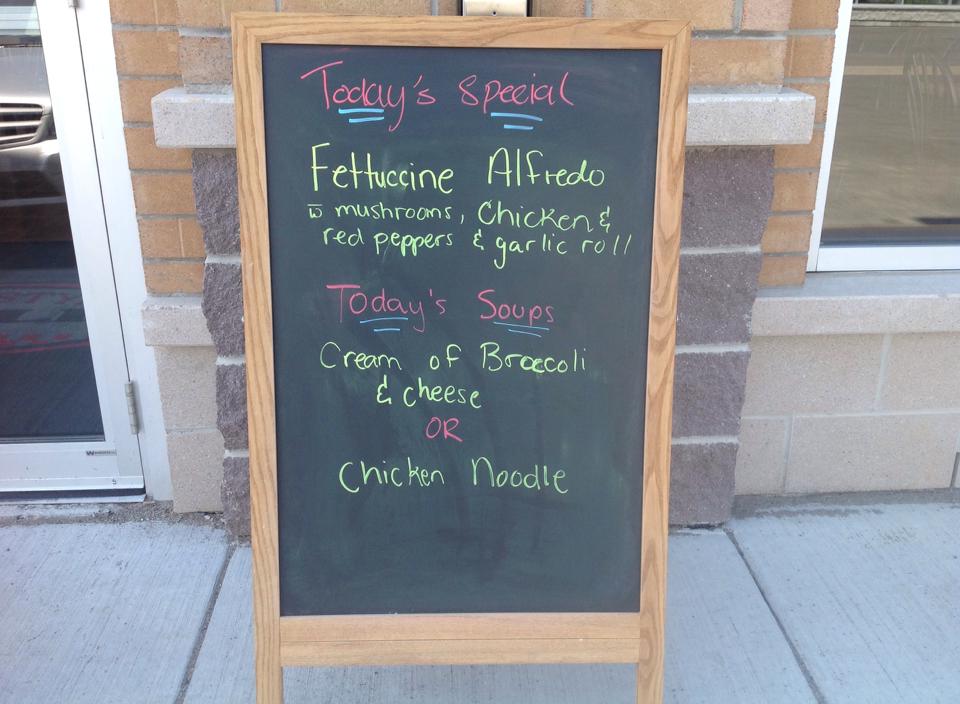 Today's Special
Fettuccine Alfredo
w̅ mushrooms, Chicken &
red peppers & garlic roll
Today's Soups
Cream of Broccoli
& cheese
OR
Chicken Noodle